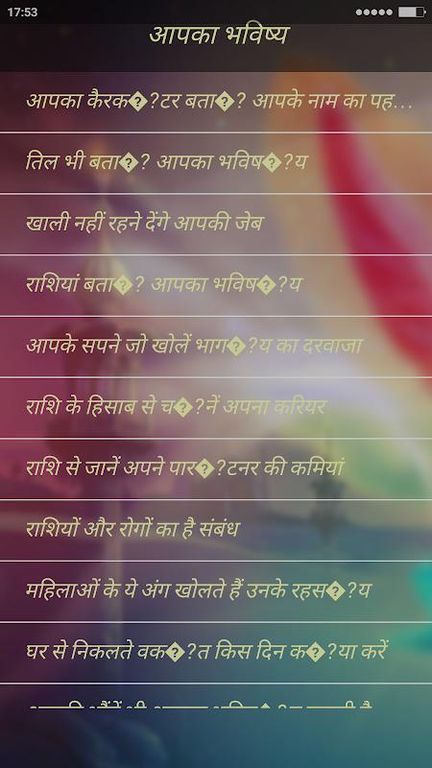 17:53
आपका भविष्य
आपका कैरक�?टर बता�? आपके नाम का पह...
तिल भी बता�? आपका भविष�?य
खाली नहीं रहने देंगे आपकी जेब
राशियां बता�? आपका भविष�?य
आपके सपने जो खोलें भाग�?य का दरवाजा
राशि के हिसाब से च�?नें अपना करियर
राशि से जानें अपने पार�?टनर की कमियां
राशियों और रोगों का है संबंध
महिलाओं के ये अंग खोलते हैं उनके रहस�?य
घर से निकलते वक�?त किस दिन क�?या करें